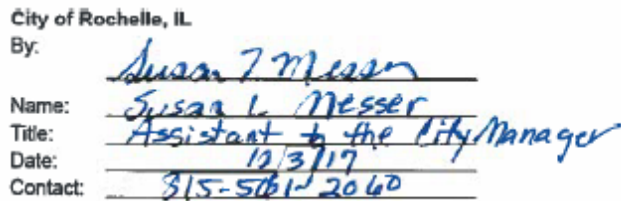 City of Rochelle, IL
By: Susan L Messer
Name: Susan L. Messer
Title: Assistant to the City Manager
Date: 12/3/17
Contact: 815-561-2060